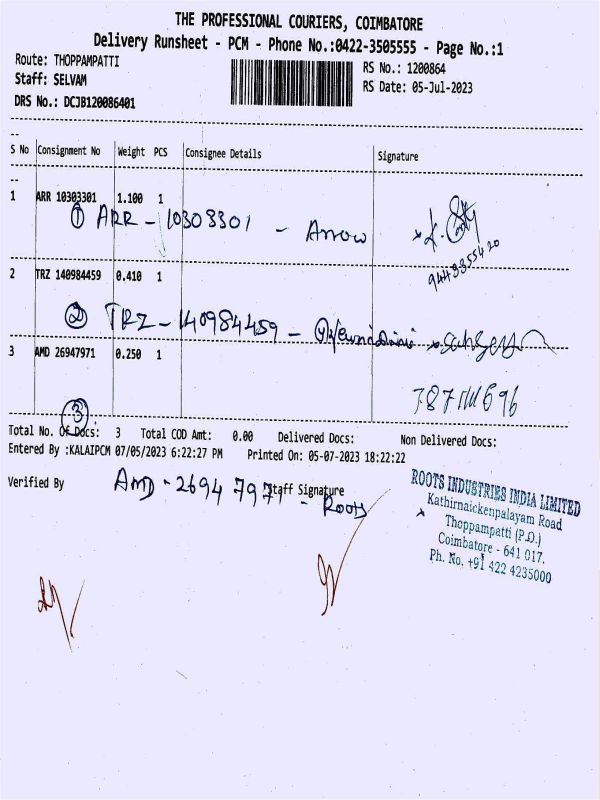 THE PROFESSIONAL COURIERS, COIMBATORE
Delivery Runsheet - PCM - Phone No.:0422-3505555 - Page No.:1
Route: THOPPAMPATTI
RS No.: 1200864
Staff: SELVAM
RS Date: 05-Jul-2023
DRS No.: DCJB120086401
S No Consignment No Weight PCS Consignee Details Signature
1 ARR 10303301 1.100 1
① ARR - 10303301 - Arrow
2 TRZ 140984459 0.410 1
② TRZ - 140984459 -
3 AMD 26947971 0.250 1
③
Total No. Of Docs: 3 Total COD Amt: 0.00 Delivered Docs: Non Delivered Docs:
Entered By :KALAIPCM 07/05/2023 6:22:27 PM Printed On: 05-07-2023 18:22:22
Verified By Staff Signature
AMD - 26947971 - Roots
ROOTS INDUSTRIES INDIA LIMITED
Kathirnaickenpalayam Road
Thoppampatti (P.O.)
Coimbatore - 641 017.
Ph. No. +91 422 4235000